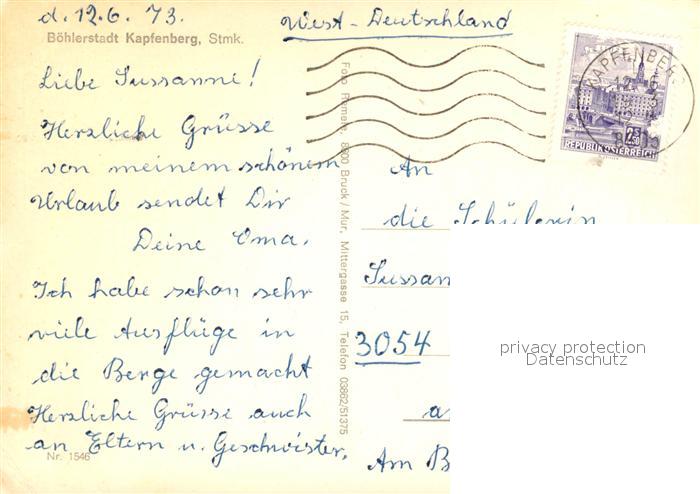 d. 12.6.73.
Böhlerstadt Kapfenberg, Stmk.
Liebe Sussanne!
Herzliche Grüsse
von meinem schönem
Urlaub sendet Dir
Deine Oma.
Ich habe schon sehr
viele Ausflüge in
die Berge gemacht
Herzliche Grüsse auch
an Eltern u. Geschwister.
Nr. 1546
Foto Romere, 8600 Bruck/Mur, Mittergasse 15, Telefon 03862/51375
West-Deutschland
KAPFENBERG
S 2.50
REPUBLIK ÖSTERREICH
An
die Schülerin
Sussan
3054
a
Am B
privacy protection
Datenschutz